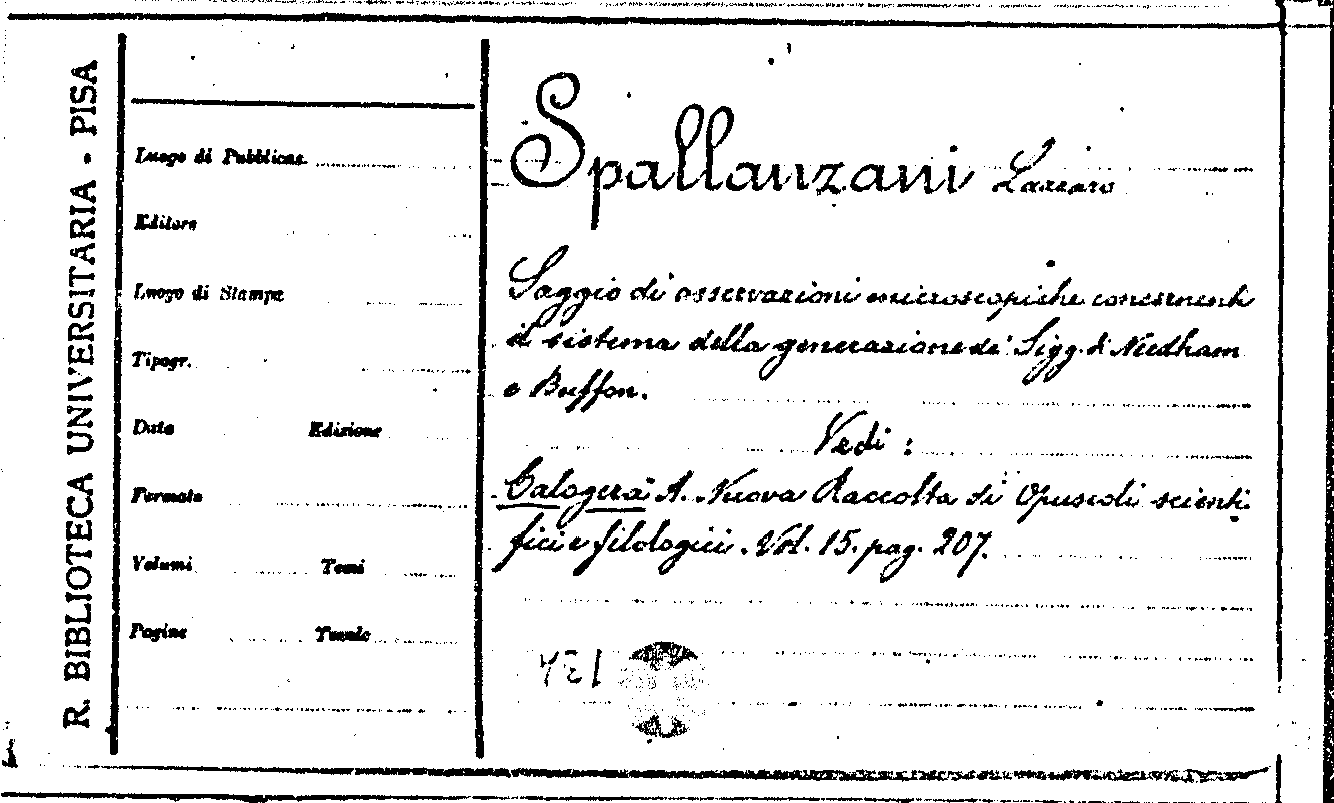 R. BIBLIOTECA UNIVERSITARIA - PISA
Luogo di Pubblicaz.
Editore
Luogo di Stampa
Tipogr.
Data Edizione
Formato
Volumi Tomi
Pagine Tavole
Spallanzani Lazzaro
Saggio di osservazioni microscopiche concernenti
il sistema della generazione de' Sigg. di Needham
e Buffon.
Vedi :
Calogerà A. Nuova Raccolta di Opuscoli scienti-
fici e filologici. Vol. 15. pag. 207.